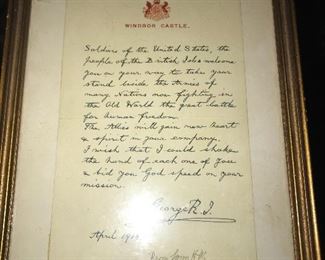 WINDSOR CASTLE.
Soldiers of the United States, the
people of the British Isles welcome
you on your way to take your
stand beside the Armies of
many Nations now fighting in
the Old World the great battle
for human freedom.
The Allies will gain new heart
& spirit in your company.
I wish that I could shake
the hand of each one of you
& bid you God speed on your
mission.
George R.I.
April 1918.